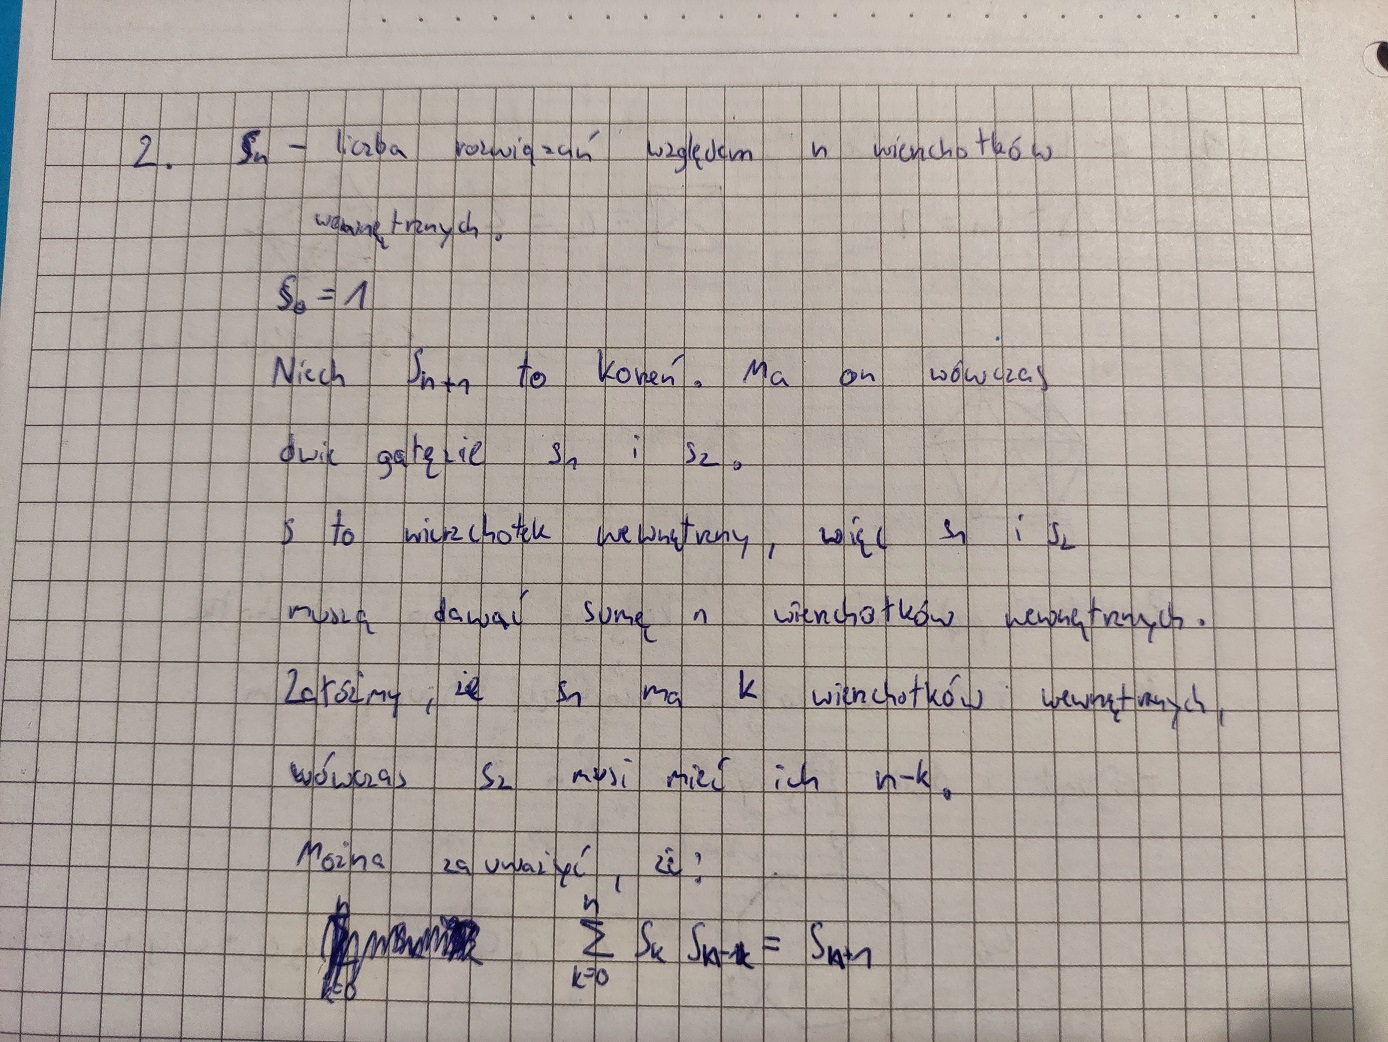 2. Sn - liczba rozwiązań względem n wierzchołków
wewnętrznych.
S0 = 1
Niech Sn+1 to korzeń. Ma on wówczas
dwie gałęzie s1 i s2.
s to wierzchołek wewnętrzny, więc s1 i s2
muszą dawać sumę n wierzchołków wewnętrznych.
Załóżmy, że s1 ma k wierzchołków wewnętrznych,
wówczas s2 musi mieć ich n-k.
Można zauważyć, że:
n
∑ Sk Sn-k = Sn+1
k=0